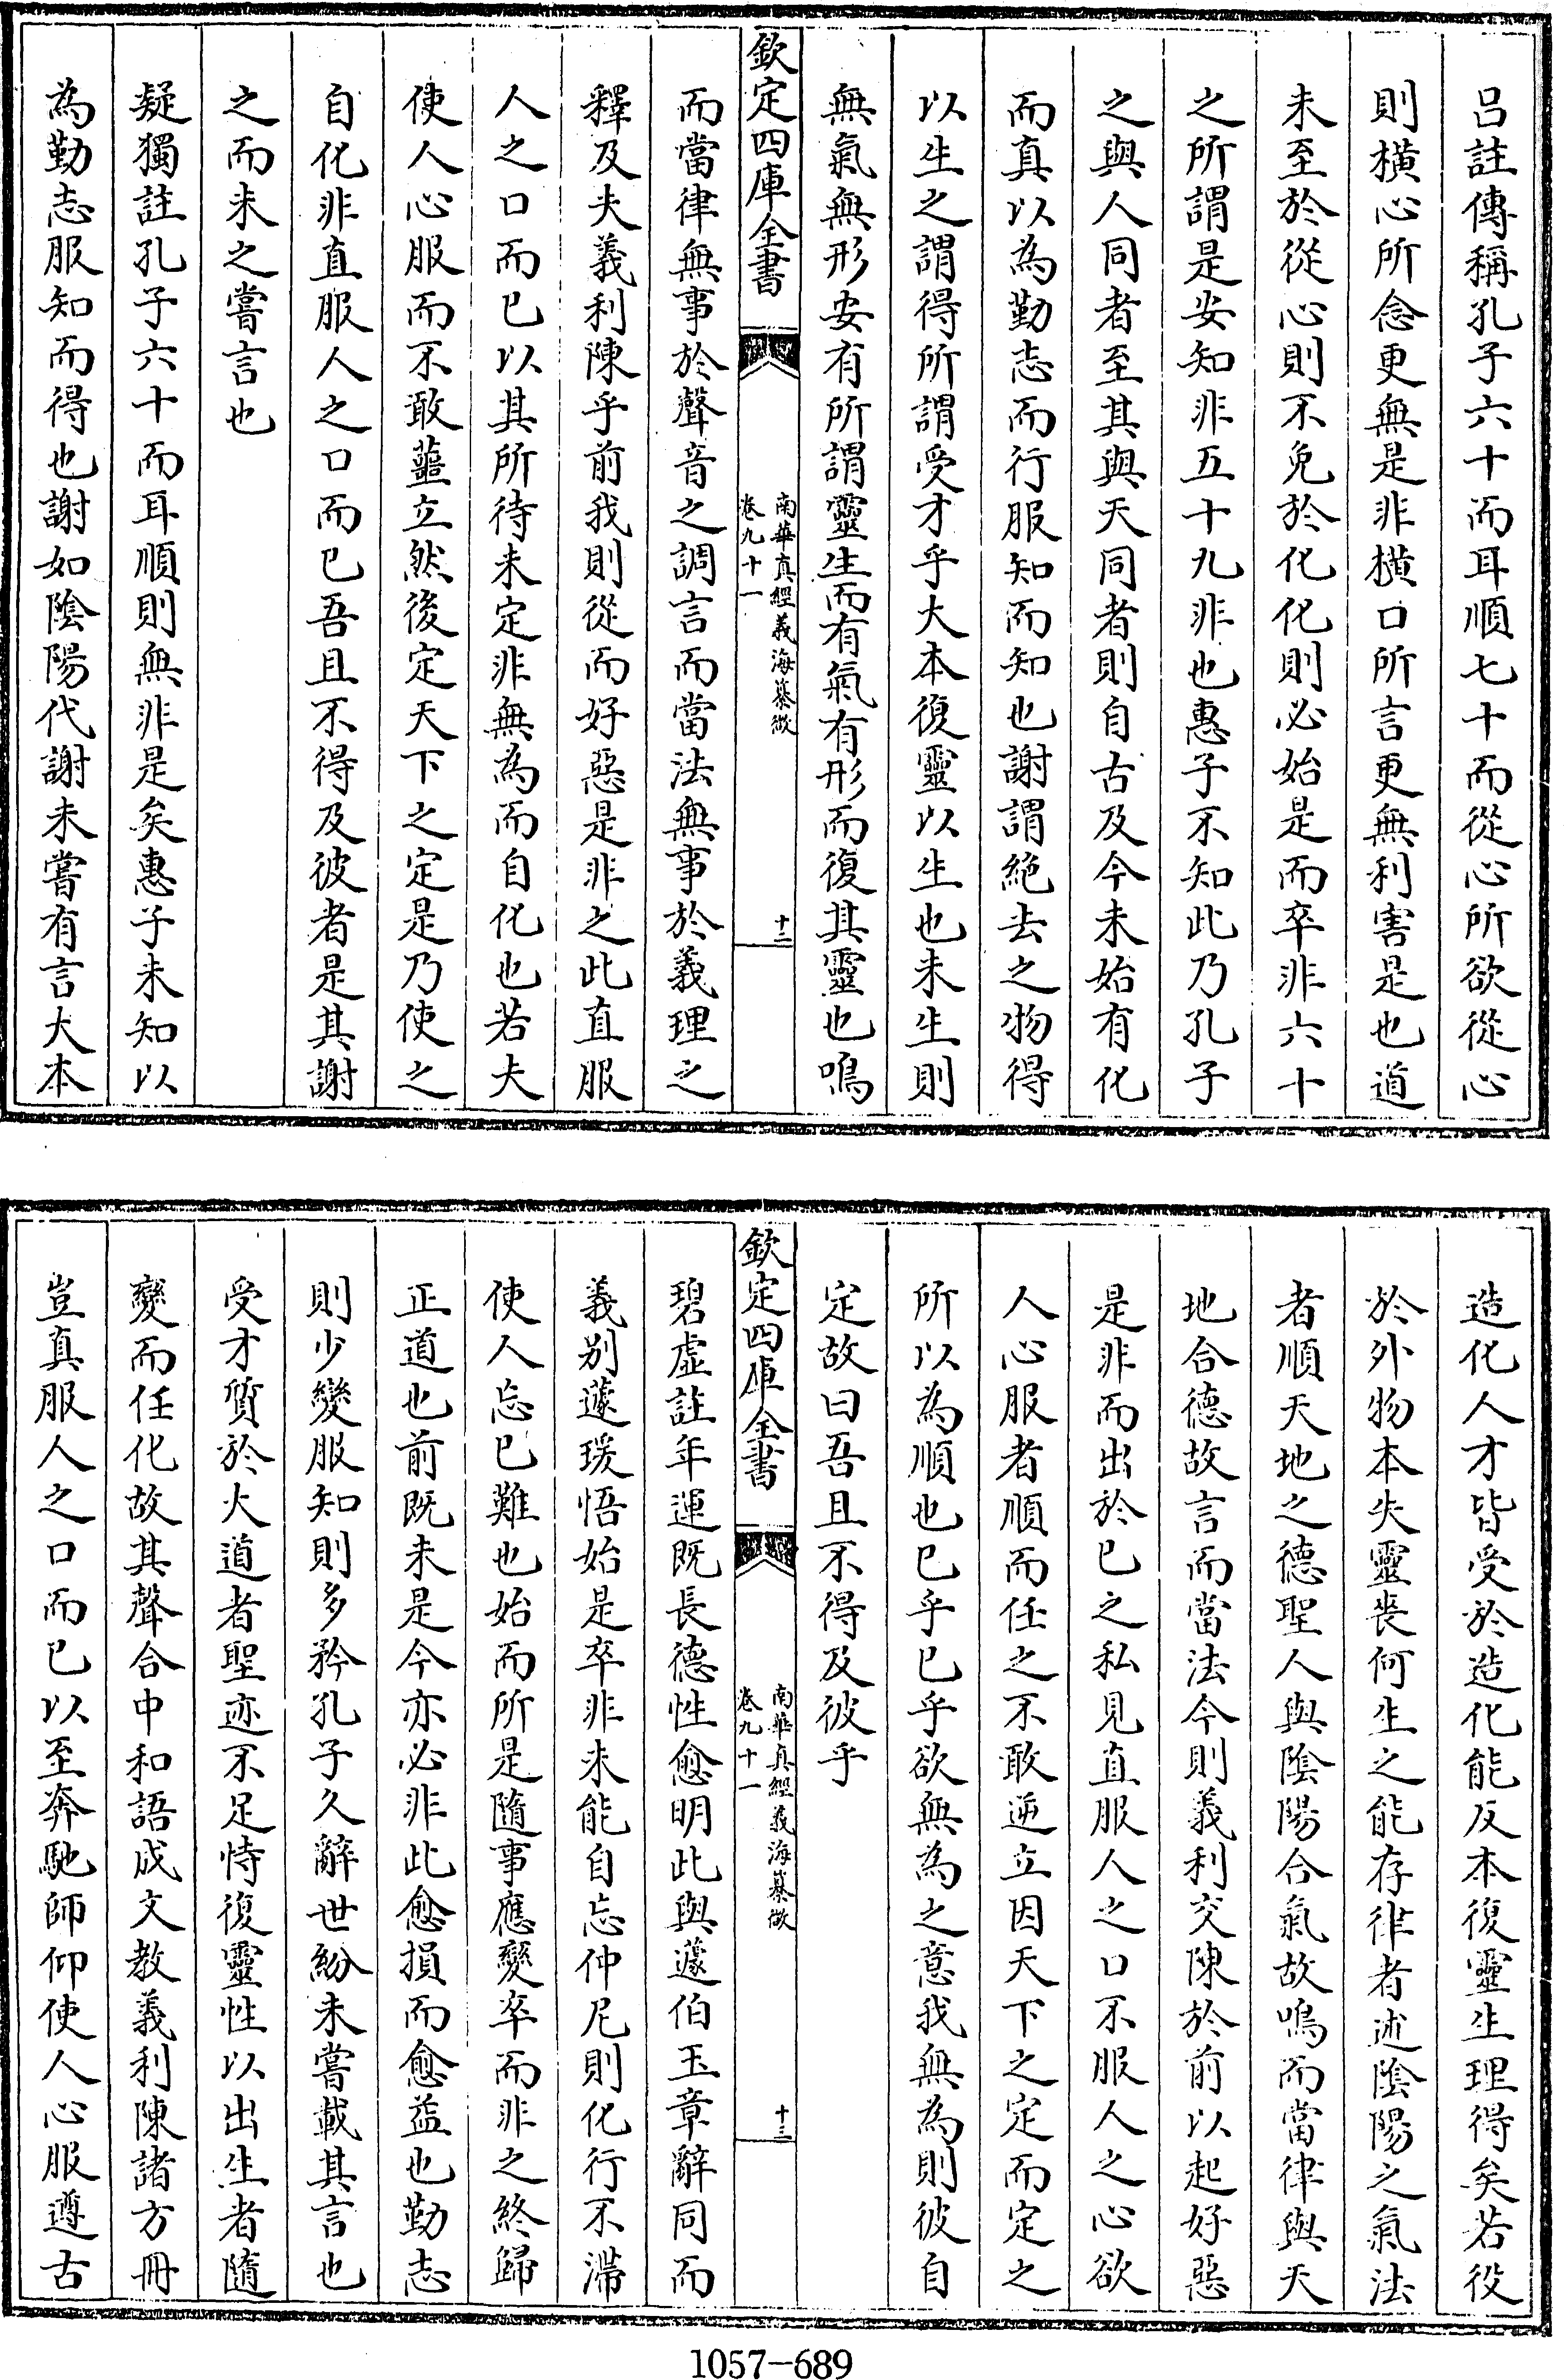 吕註傳稱孔子六十而耳順七十而從心所欲從心
則横心所念更無是非横口所言更無利害是也道
未至於從心則不免於化化則必始是而卒非六十
之所謂是安知非五十九非也惠子不知此乃孔子
之與人同者至其與天同者則自古及今未始有化
而真以為勤志而行服知而知也謝謂絶去之物得
以生之謂得所謂受才乎大本復靈以生也未生則
無氣無形安有所謂靈生而有氣有形而復其靈也鳴
欽定四庫全書
南華真經義海纂微
卷九十一
十二
而當律無事於聲音之調言而當法無事於義理之
釋及夫義利陳乎前我則從而好惡是非之此直服
人之口而已以其所待未定非無為而自化也若夫
使人心服而不敢蘁立然後定天下之定是乃使之
自化非直服人之口而已吾且不得及彼者是其謝
之而未之嘗言也
疑獨註孔子六十而耳順則無非是矣惠子未知以
為勤志服知而得也謝如陰陽代謝未嘗有言大本
造化人才皆受於造化能反本復靈生理得矣若役
於外物本失靈喪何生之能存律者述陰陽之氣法
者順天地之德聖人與陰陽合氣故鳴而當律與天
地合德故言而當法今則義利交陳於前以起好惡
是非而出於已之私見直服人之口不服人之心欲
人心服者順而任之不敢逆立因天下之定而定之
所以為順也已乎已乎欲無為之意我無為則彼自
定故曰吾且不得及彼乎
欽定四庫全書
南華真經義海纂微
卷九十一
十三
碧虚註年運既長德性愈明此與蘧伯玉章辭同而
義别蘧瑗悟始是卒非未能自忘仲尼則化行不滯
使人忘已難也始而所是隨事應變卒而非之終歸
正道也前既未是今亦必非此愈損而愈益也勤志
則少變服知則多矜孔子久辭世紛未嘗載其言也
受才質於大道者聖迹不足恃復靈性以出生者隨
變而任化故其聲合中和語成文教義利陳諸方冊
豈真服人之口而已以至奔馳師仰使人心服遵古
1057-689